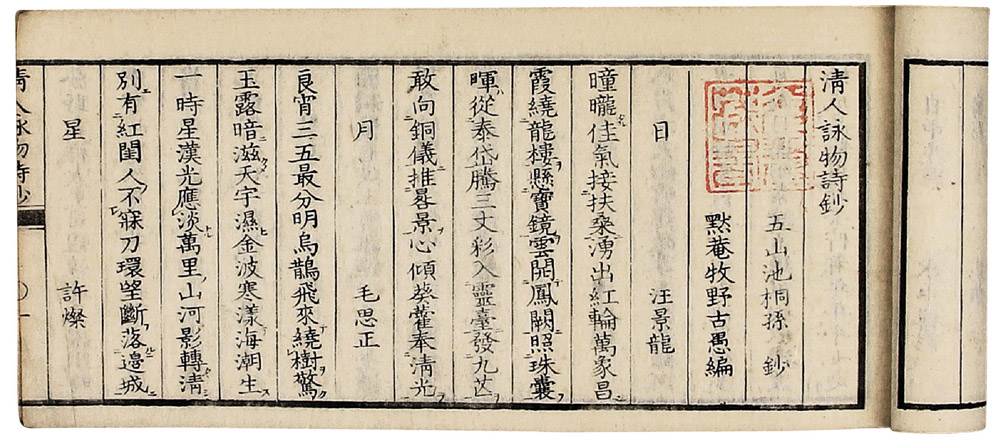 清人詠物詩鈔
五山池桐孫 鈔
黙菴牧野古愚編
日 汪景龍
曈曨佳氣接扶桑湧出紅輪萬象昌
霞繞龍樓懸寶鏡雲開鳳闕照珠囊
暉從泰岱騰三丈彩入靈臺發九芒
敢向銅儀推晷景心傾葵藿奉清光
月 毛思正
良宵三五最分明烏鵲飛來繞樹驚
玉露暗滋天宇濕金波寒漾海潮生
一時星漢光應淡萬里山河影轉清
別有紅閨人不寐刀環望斷落邊城
星 許燦
清人詠物詩鈔